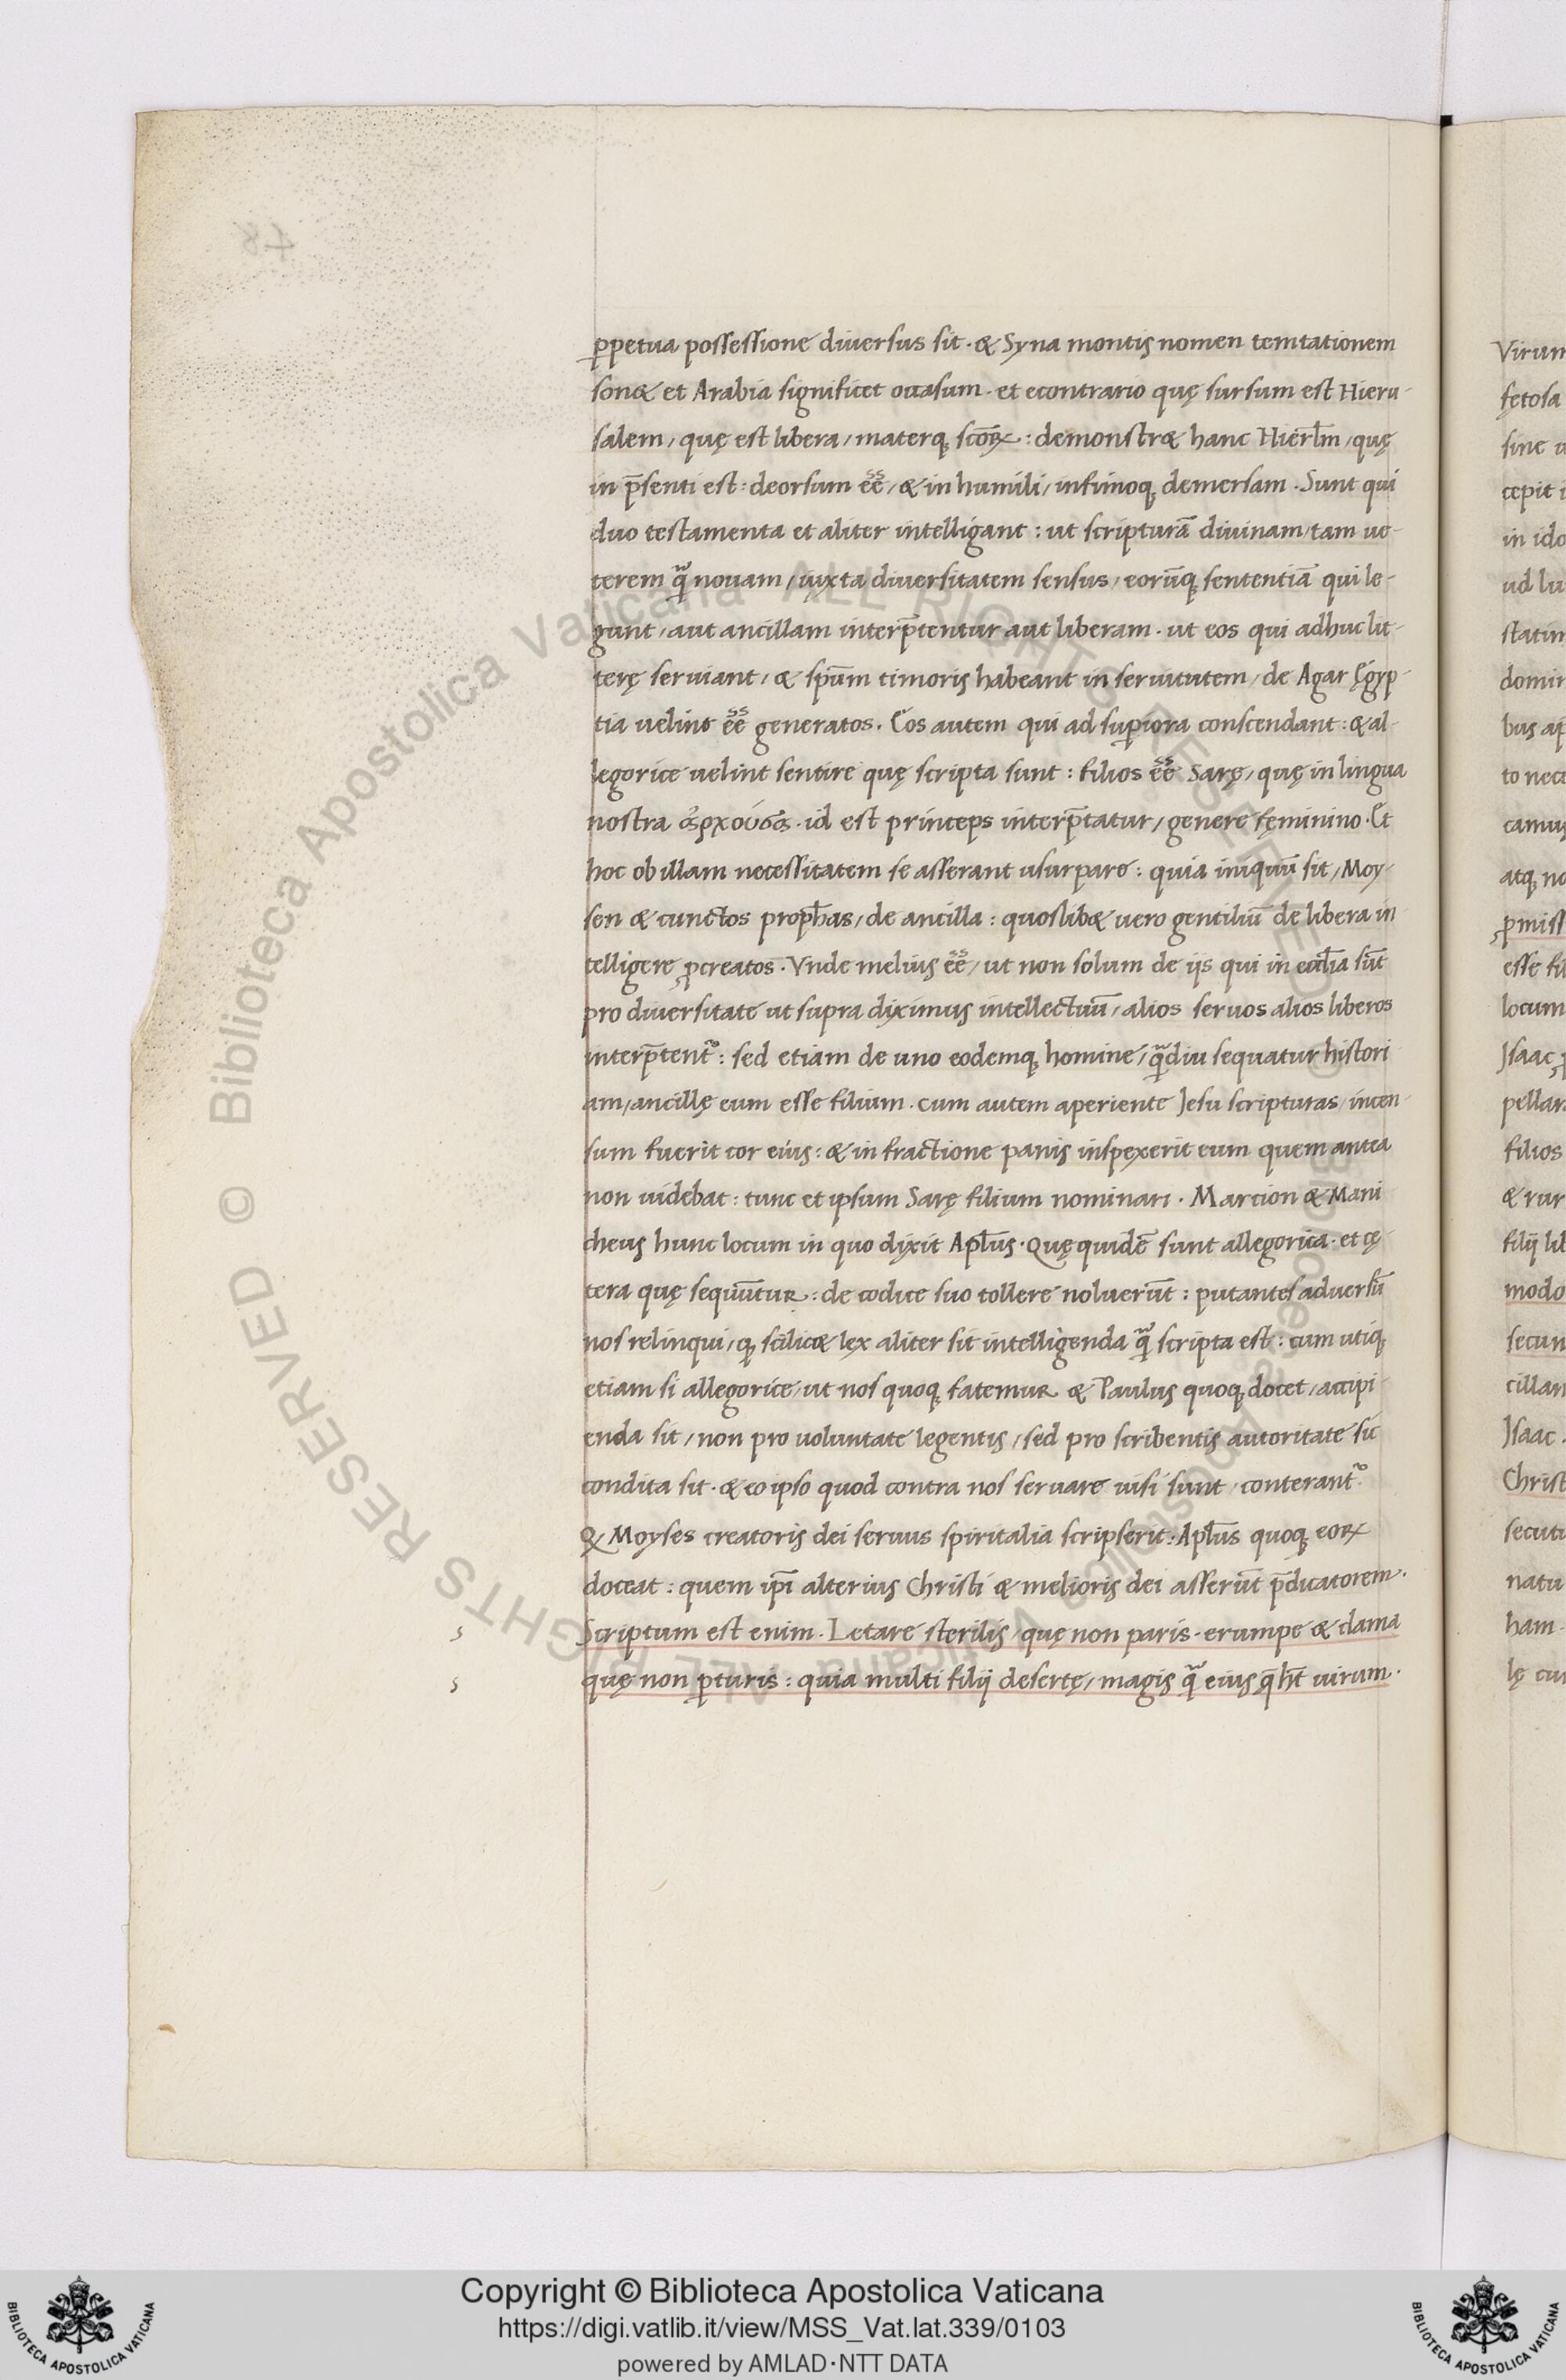 ꝑpetua possessione diuersus sit · & Syna montis nomen temtationem
son& et Arabia significet occasum · et econtrario quę sursum est Hieru-
salem, quę est libera, materq; scōꝝ: demonstr& hanc Hierl̄m, quę
in p̄senti est: deorsum eē̄, & in humili, infimoq; demersam. Sunt qui
duo testamenta et aliter intelligant: ut scripturā diuinam, tam ue-
terem qᷓ nouam, iuxta diuersitatem sensus, eorūq; sententiā qui le-
gunt, aut ancillam interp̄tentur aut liberam. ut eos qui adhuc lit-
terę seruiant, & spūm timoris habeant in seruitutem, de Agar Ęgyp-
tia uelint eē̄ generatos. Eos autem qui ad suꝑiora conscendant: & al-
legorice uelint sentire quę scripta sunt: filios eē̄ Sarę, quę in lingua
nostra ἄρχουσα. id est princeps interp̄tatur, genere fęminino. Et
hoc ob illam necessitatem se asserant usurpare: quia iniquū sit, Moy-
sen & cunctos proph̄as, de ancilla: quoslib& uero gentiliū de libera in
telligere ꝓcreatos. Vnde melius eē̄, ut non solum de ijs qui in eccl̄ia sūt
pro diuersitate ut supra diximus intellectuū, alios seruos alios liberos
interp̄tent᷑: sed etiam de uno eodemq; homine, qᷓdiu sequatur histori
am, ancillę eum esse filium. cum autem aperiente Jesu scripturas, incen-
sum fuerit cor eius: & in fractione panis inspexerit eum quem antea
non uidebat: tunc et ipsum Sarę filium nominari. Marcion & Mani
cheus hunc locum in quo dixit Apl̄us. Quę quidē sunt allegorica. et cę-
tera quę sequūtur: de codice suo tollere noluerūt: putantes aduersū
nos relinqui, ꝙ scilic& lex aliter sit intelligenda qᷓ scripta est: cum utiq;
etiam si allegorice, ut nos quoq; fatemur & Paulus quoq; docet, accipi-
enda sit, non pro uoluntate legentis, sed pro scribentis autoritate sic
condita sit. & eo ipso quod contra nos seruare uisi sunt, conterant᷑.
Ꝙ Moyses creatoris dei seruus spiritalia scripserit: Apl̄us quoq; eoꝝ
doceat: quem ip̄i alterius Christi & melioris dei asserūt p̄dicatorem.
s Scriptum est enim. Letare sterilis, quę non paris. erumpe & clama
s quę non ꝑturis: quia multi filij desertę, magis qᷓ eius q̄ h̄t uirum.
Copyright © Biblioteca Apostolica Vaticana
https://digi.vatlib.it/view/MSS_Vat.lat.339/0103
powered by AMLAD·NTT DATA